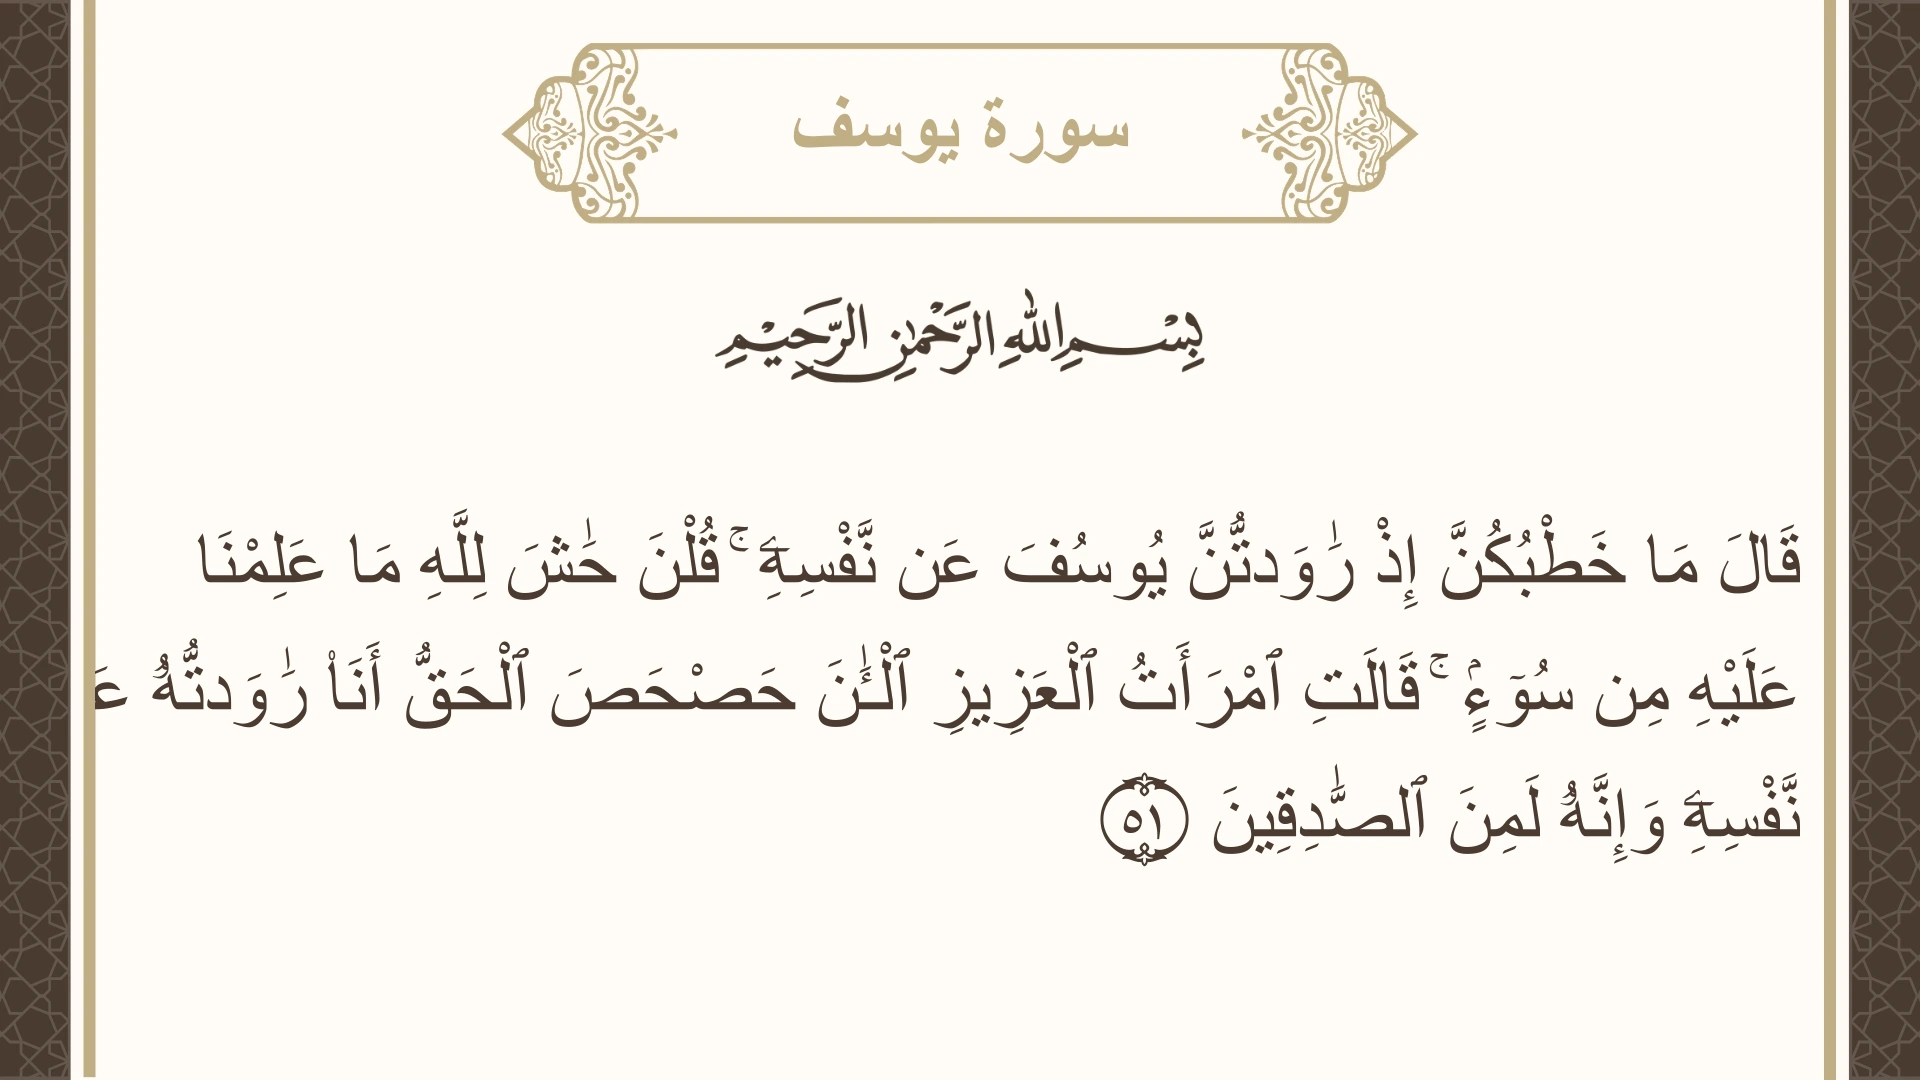 سورة يوسف
بِسْمِ اللهِ الرَّحْمٰنِ الرَّحِيْمِ
قَالَ مَا خَطْبُكُنَّ إِذْ رَٰوَدتُّنَّ يُوسُفَ عَن نَّفْسِهِۦ ۚ قُلْنَ حَٰشَ لِلَّهِ مَا عَلِمْنَا
عَلَيْهِ مِن سُوٓءٍۢ ۚ قَالَتِ ٱمْرَأَتُ ٱلْعَزِيزِ ٱلْـَٰٔنَ حَصْحَصَ ٱلْحَقُّ أَنَا۠ رَٰوَدتُّهُۥ
نَّفْسِهِۦ وَإِنَّهُۥ لَمِنَ ٱلصَّٰدِقِينَ ٥١